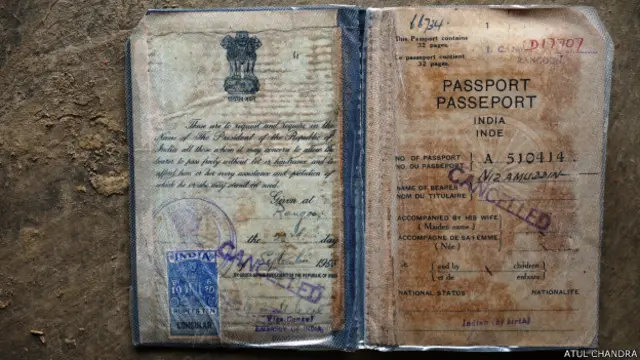 These are to request and require in the
Name of the President of the Republic of
India all those whom it may concern to allow the
bearer to pass freely without let or hindrance and to
afford him or her every assistance and protection of
which he or she may stand in need.
Given at
the
day
CANCELLED
INDIA
CONSULAR
Vice Consul
EMBASSY OF INDIA,
66734
1
This Passport contains
32 pages.
D17707
Ce passeport contient
32 pages.
RANGOON
PASSPORT
PASSEPORT
INDIA
INDE
NO. OF PASSPORT
NO. DU PASSEPORT
A 510414
NAME OF BEARER
NOM DU TITULAIRE
NIZAMUDDIN
CANCELLED
ACCOMPANIED BY HIS WIFE
(Maiden name)
ACCOMPAGNE DE SA FEMME
(Née)
and by
children
et de
enfants
NATIONAL STATUS
NATIONALITE
Indian by birth
ATUL CHANDRA